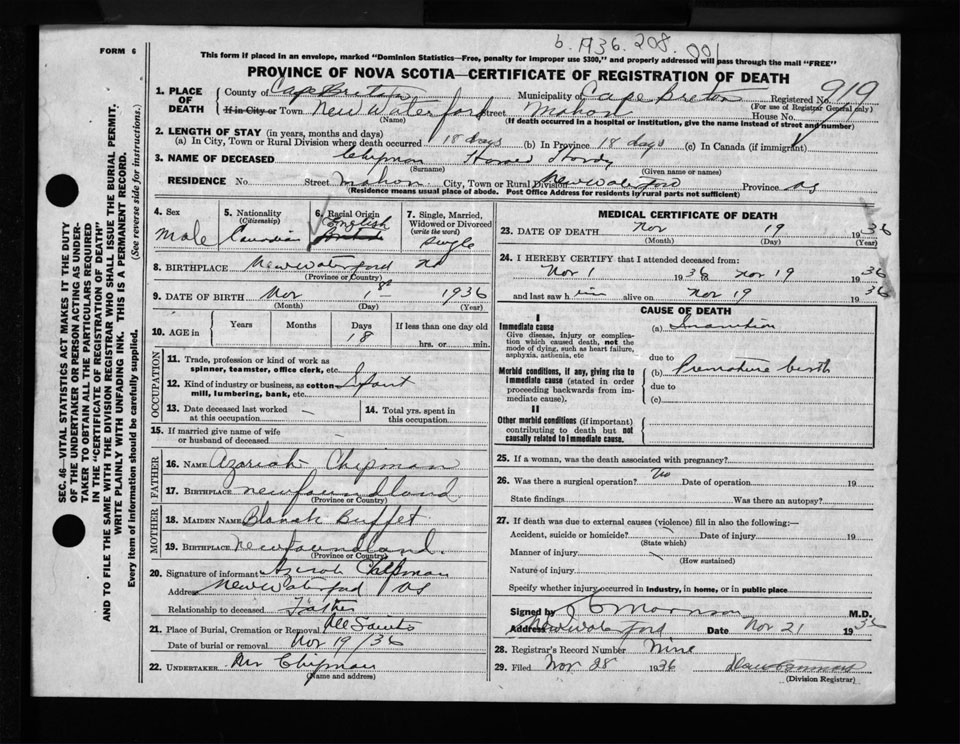 b. A36. 208. 001
FORM 6
This form if placed in an envelope, marked "Dominion Statistics—Free, penalty for improper use $300," and properly addressed will pass through the mail "FREE"
PROVINCE OF NOVA SCOTIA—CERTIFICATE OF REGISTRATION OF DEATH
1. PLACE OF DEATH
County of Cape Breton Municipality of Cape Breton Registered No. 919
(For use of Registrar General only)
If in City or Town New Waterford Street Mahon House No.
(Name) (If death occurred in a hospital or institution, give the name instead of street and number)
2. LENGTH OF STAY (in years, months and days)
(a) In City, Town or Rural Division where death occurred 18 days (b) In Province 18 days (c) In Canada (if immigrant)
3. NAME OF DECEASED Chipman Howard Hardy
(Surname) (Given name or names)
RESIDENCE No. Street Mahon City, Town or Rural Division New Waterford Province NS
(Residence means usual place of abode. Post Office Address for residents in rural parts not sufficient)
4. Sex
male
5. Nationality
(Citizenship)
Canadian
6. Racial Origin
English
7. Single, Married, Widowed or Divorced
(write the word)
Single
8. BIRTHPLACE New Waterford NS
(Province or Country)
9. DATE OF BIRTH Nov 1st 1936
(Month) (Day) (Year)
10. AGE in
Years Months Days If less than one day old
18 hrs. or min.
OCCUPATION
11. Trade, profession or kind of work as spinner, teamster, office clerk, etc.
12. Kind of industry or business, as cotton mill, lumbering, bank, etc. Infant
13. Date deceased last worked at this occupation —
14. Total yrs. spent in this occupation
15. If married give name of wife or husband of deceased —
FATHER
16. NAME Azariah Chipman
17. BIRTHPLACE Newfoundland
(Province or Country)
MOTHER
18. MAIDEN NAME Blanch Buffet
19. BIRTHPLACE Newfoundland.
(Province or Country)
20. Signature of informant Chipman
Address New Waterford NS
Relationship to deceased Father
21. Place of Burial, Cremation or Removal All Saints
Date of burial or removal Nov 19/36
22. UNDERTAKER Mr Chipman
(Name and address)
MEDICAL CERTIFICATE OF DEATH
23. DATE OF DEATH Nov 19 1936
(Month) (Day) (Year)
24. I HEREBY CERTIFY that I attended deceased from:
Nov 1 1936 to Nov 19 1936
and last saw him alive on Nov 19 1936
CAUSE OF DEATH
I
Immediate cause
Give disease, injury or complication which caused death, not the mode of dying, such as heart failure, asphyxia, asthenia, etc
(a) Inanition
due to
Morbid conditions, if any, giving rise to immediate cause (stated in order proceeding backwards from immediate cause).
(b) Premature birth
due to
(c)
II
Other morbid conditions (if important) contributing to death but not causally related to immediate cause.
25. If a woman, was the death associated with pregnancy?
26. Was there a surgical operation? No Date of operation 19
State findings Was there an autopsy?
27. If death was due to external causes (violence) fill in also the following:—
Accident, suicide or homicide? Date of injury 19
(State which)
Manner of injury
(How sustained)
Nature of injury
Specify whether injury occurred in industry, in home, or in public place
Signed by M.D.
Address New Waterford Date Nov 21 1936
28. Registrar's Record Number Nine
29. Filed Nov 28 1936
(Division Registrar)
SEC. 46—VITAL STATISTICS ACT MAKES IT THE DUTY
OF THE UNDERTAKER OR PERSON ACTING AS UNDER-
TAKER TO OBTAIN ALL THE PARTICULARS REQUIRED
IN THE "CERTIFICATE OF REGISTRATION OF DEATH"
AND TO FILE THE SAME WITH THE DIVISION REGISTRAR WHO SHALL ISSUE THE BURIAL PERMIT.
WRITE PLAINLY WITH UNFADING INK. THIS IS A PERMANENT RECORD.
Every item of information should be carefully supplied. (See reverse side for instructions.)